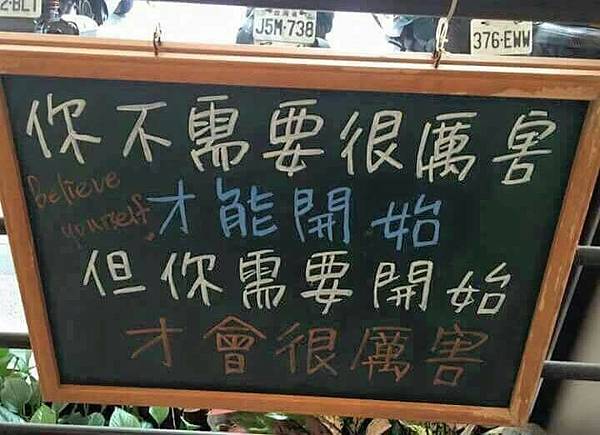 J5M·738
376·EWW
你不需要很厲害
believe
yourself
才能開始
但你需要開始
才會很厲害